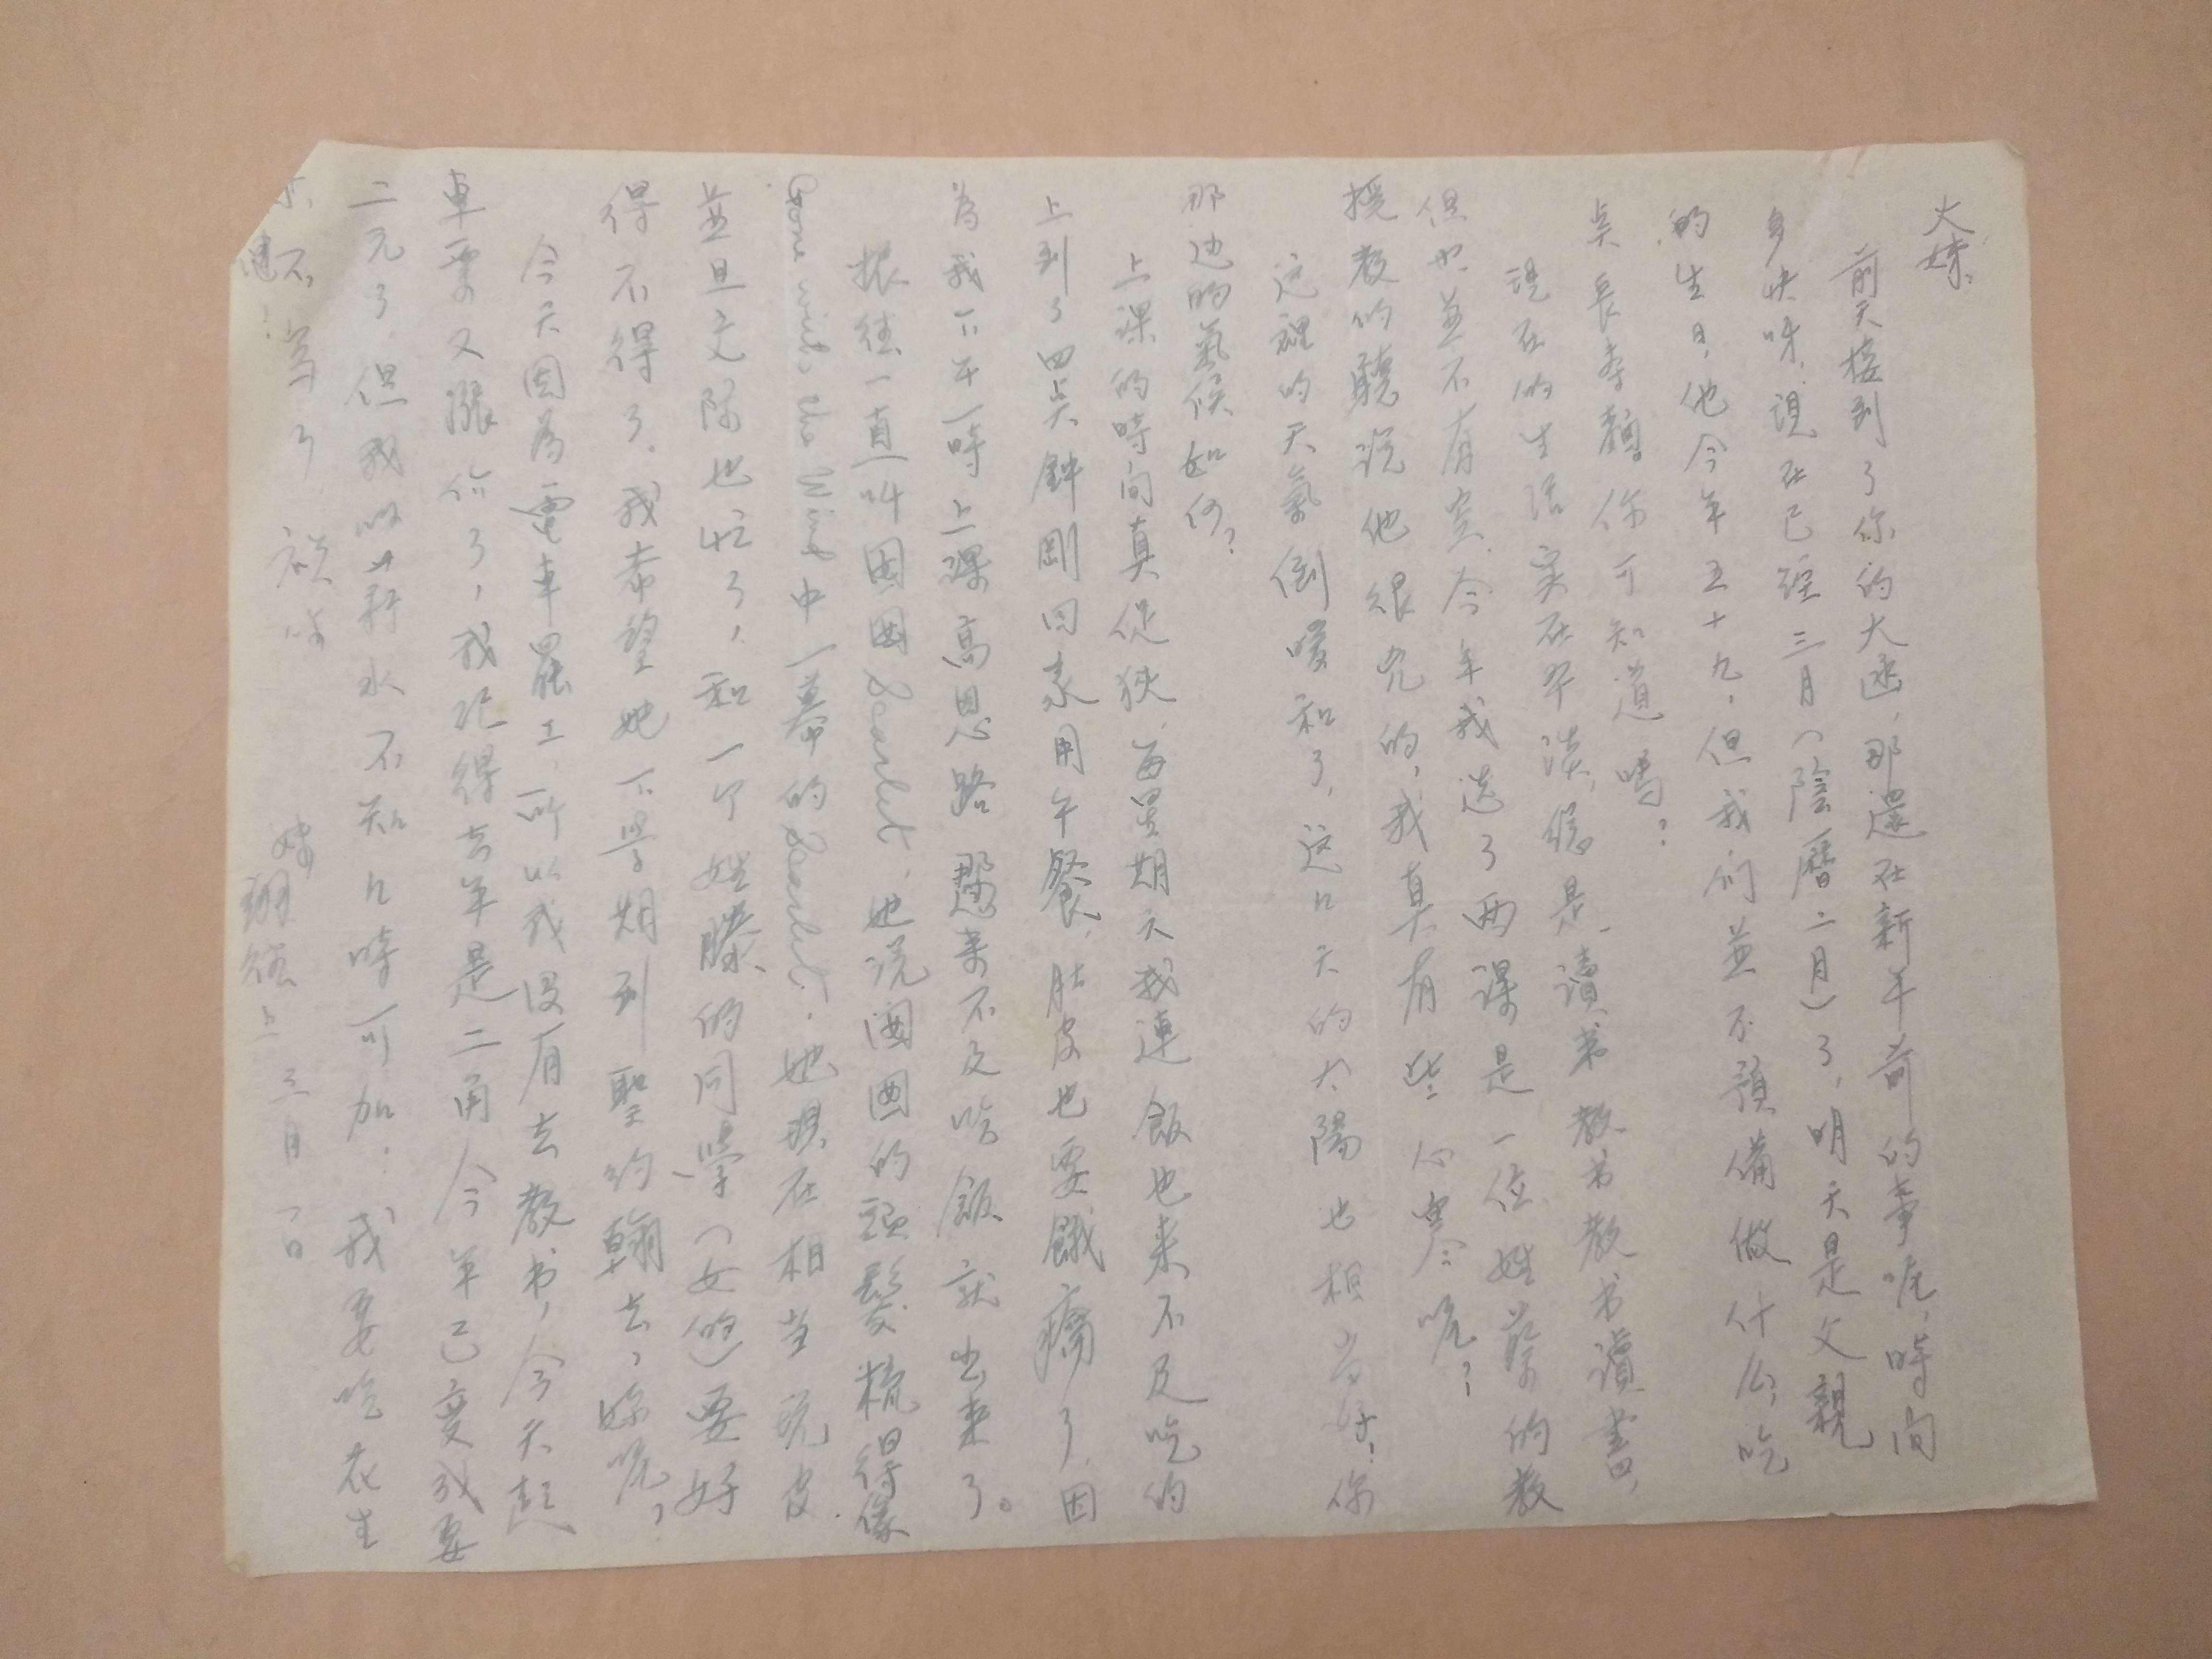 大妹:
前天接到了你的大函，那還在新年前的事呢，時间
多快呀，現在已經三月（陰曆二月）了，明天是父親
的生日，他今年五十九，但我们並不預備做什么，吃
点長寿麵，你可知道嗎？
現在的生活実在平淡，總是讀書教书教书讀書，
但也並不有空，今年我选了两課是一位姓蔡的教
授教的聽说他很兇的，我真有些心寒呢？
这裡的天氣倒暖和了，这几天的太陽也相当好！你
那边的氣候如何？
上課的時间真促狹，每星期六我連飯也来不及吃的
上到了四点鈡剛回家用午餐，肚皮也要餓痛了，因
為我下午一時上課高恩路趕来不及吃飯就出来了。
振德一直叫囡囡Scarlet，她说囡囡的頭髮梳得像
Gone with the Wind中一幕中的Scarlet，她現在相当玩皮
並且交际也忙了，和一个姓滕的同學（女的）要好
得不得了，我希望她下學期到聖约翰去，妳呢？
今天因為電車罷工，所以我没有去教书，今天起
車票又漲价了，我记得去年是二角今年已变成要
二元了，但我的薪水不知几時可加，我要吃花生
不了，
祝好
三月一日